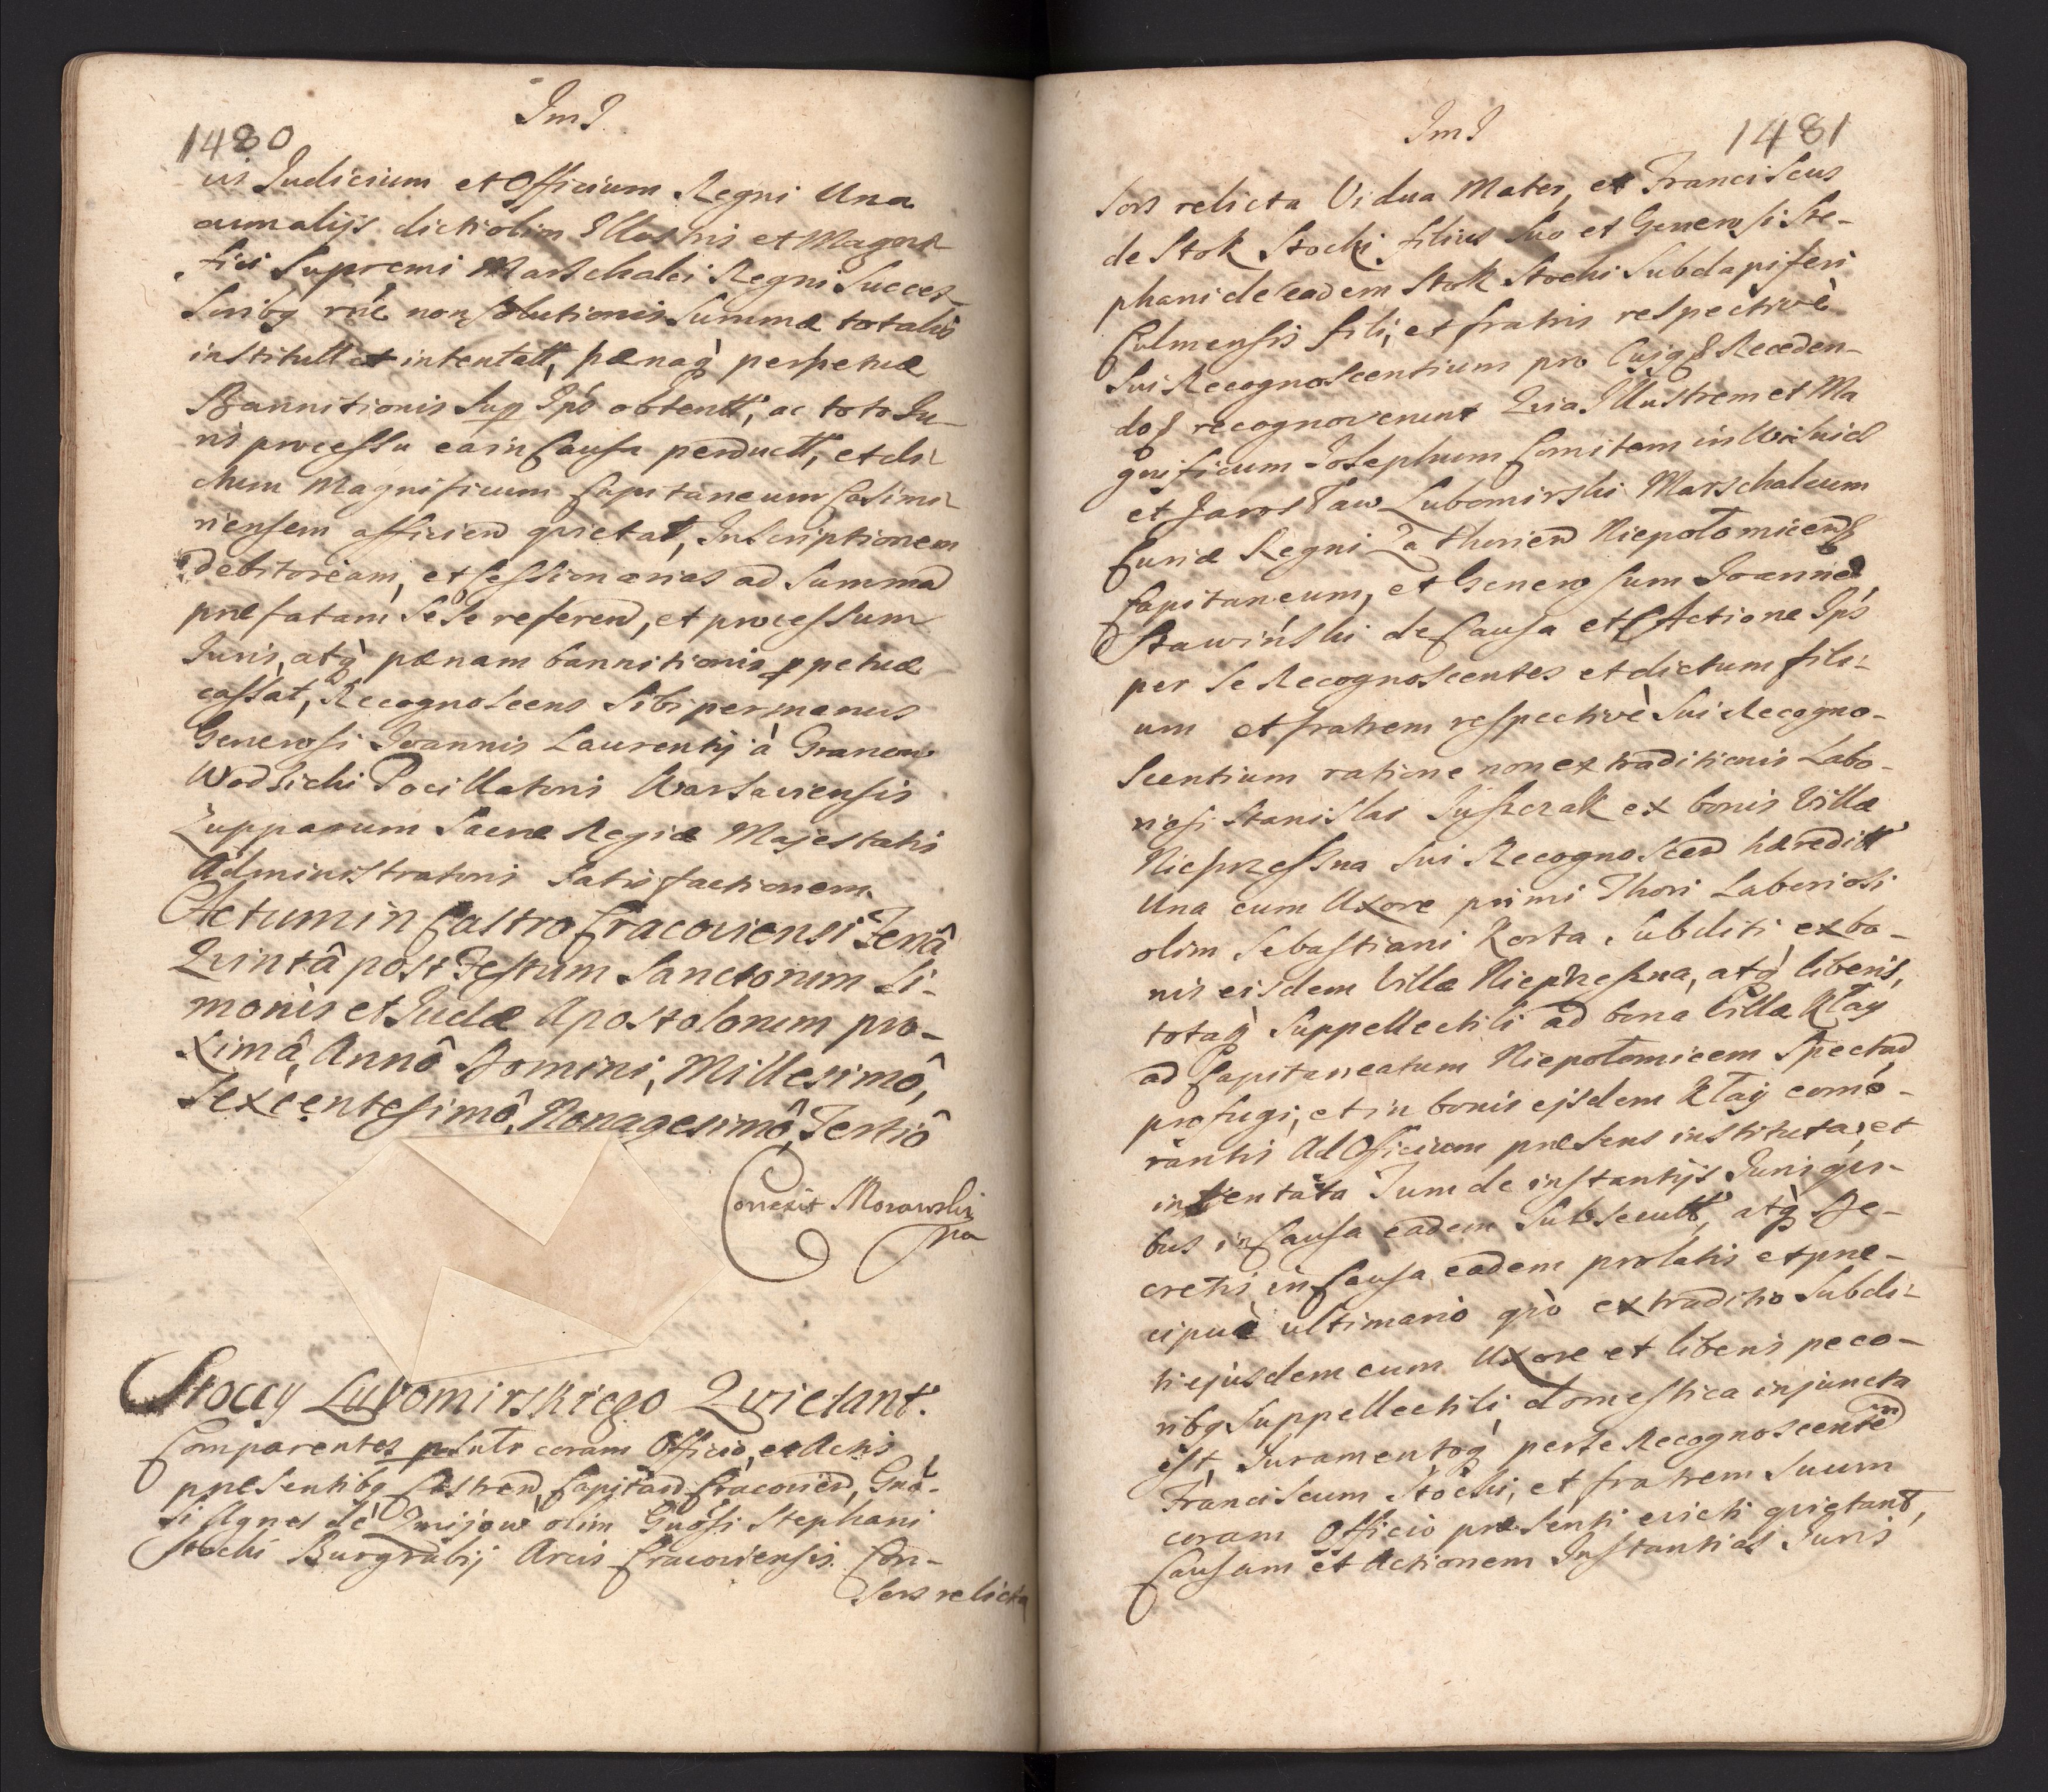 ImI
1480
us Judicium et Officium Regni Una
cum alijs dicti olim Illustris et Magni-
fici Supremi Marschalci Regni Succes-
Soribq rñe non Solutionis Summæ totalis
institutt et intentatt, pænaq̀ perpetuæ
Bannitionis Sup Ips obtentt, ac toto Ju-
ris processu ea in Causa perductt, et di-
ctum Magnificum Capitaneum Casimi-
riensem afficien quietat, Inscriptionem
debitoriam, et Cessionarias ad Summad
præfatam Se Se referen, et processum
Juris, atq̀ pænam bannitionis ppetuæ
cassat, Recognoscens Sibi per manus
Generosi Joannis Laurentij à Granow
Wodzicki Pocillatoris Warsaviensis
Zupparum Sacræ Regiæ Majestatis
Administratoris Satisfactionem.
Actum in Castro Cracoviensi Feriâ
Quintâ post Festum Sanctorum Si-
monis et Judæ Apostolorum pro-
ximâ, Annô Domini, Millesimô,
Sexcentesimô, Nonagesimô, Tertiô
Correxit Morawski
mp
Stoccy Lubomirskiego Quietant.
Comparentes psntr coram Officio, et Actis
præsentibq Castren, Capitan Cracovien, Gnô-
Si Agnes de Zmijow olim Gnôsi Stephani
Stocki Burgrabij Arcis Cracoviensis Con-
Sors relicta
ImI
1481
Sors relicta Vidua Mater, et Franciscus
de Stok Stocki filius Suo et Generosi Ste-
phani de eadem Stok Stocki Subdapiferi
Culmensis fili, et fratris respectivè
Sui Recognoscentium pro Cujq Receden-
do recognoverunt Quia Illustrem et Ma
gnificum Josephum Comitem in Wisnicz
et Jarosław Lubomirski Marschalcum
Curiæ Regni Zathorien Niepołomicen
Capitaneum, et Generosum Joannem
Stawinski de Causa et Actione Ips
per Se Recognoscentes et dictum fili-
um et fratrem respectivè Sui Recogno-
Scentium ratione non extraditionis Labo-
riosi Stanislai Juszczak ex bonis Villæ
Nieprzesna Sui Recognoscen hæreditt
Una cum Uxore primi Thori Laboriosi
olim Sebastiani Korta Subditi ex bo-
nis eisdem Villæ Nieprzesna, atq̀ liberis,
totaq̀ Suppellectili ad bona Villæ Kłay
ad Capitaneatum Niepołomicem Spectan
profugi, et in bonis ejsdem Kłay comô-
rantis Ad Officium præsens instituta, et
intentata Tum de instantijs Juris qui-
bus in Causa eadem Subsecutt, atq̀ De-
cretis in Causa eadem prolatis et præ-
cipuè ultimario quò extraditio Subdi-
ti ejusdem cum Uxore et liberis peco-
ribq Suppellectili domestica injuncta
est, Juramentoq̀ per Se Recognoscentem
Franciscum Stocki, et fratrem Suum
coram Officio præsenti evicti quietant,
Causam et Actionem Instantias Juris